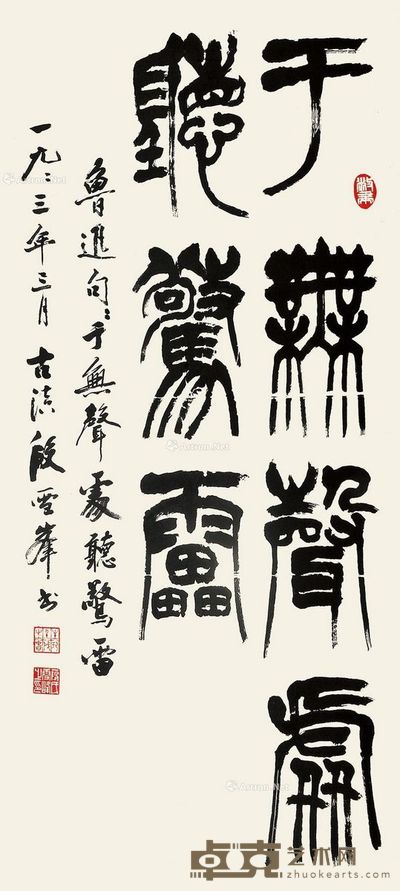 于無聲處
聽驚雷
魯進句:于無聲處聽驚雷
一九〻三年三月古滇段雪峯书
Artron.Net
卓克艺术网
zhuokearts.com